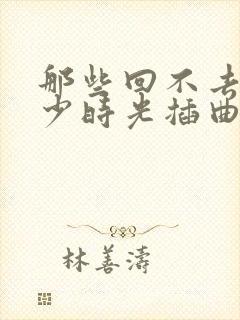 那些回不去
少时光插曲
林善涛